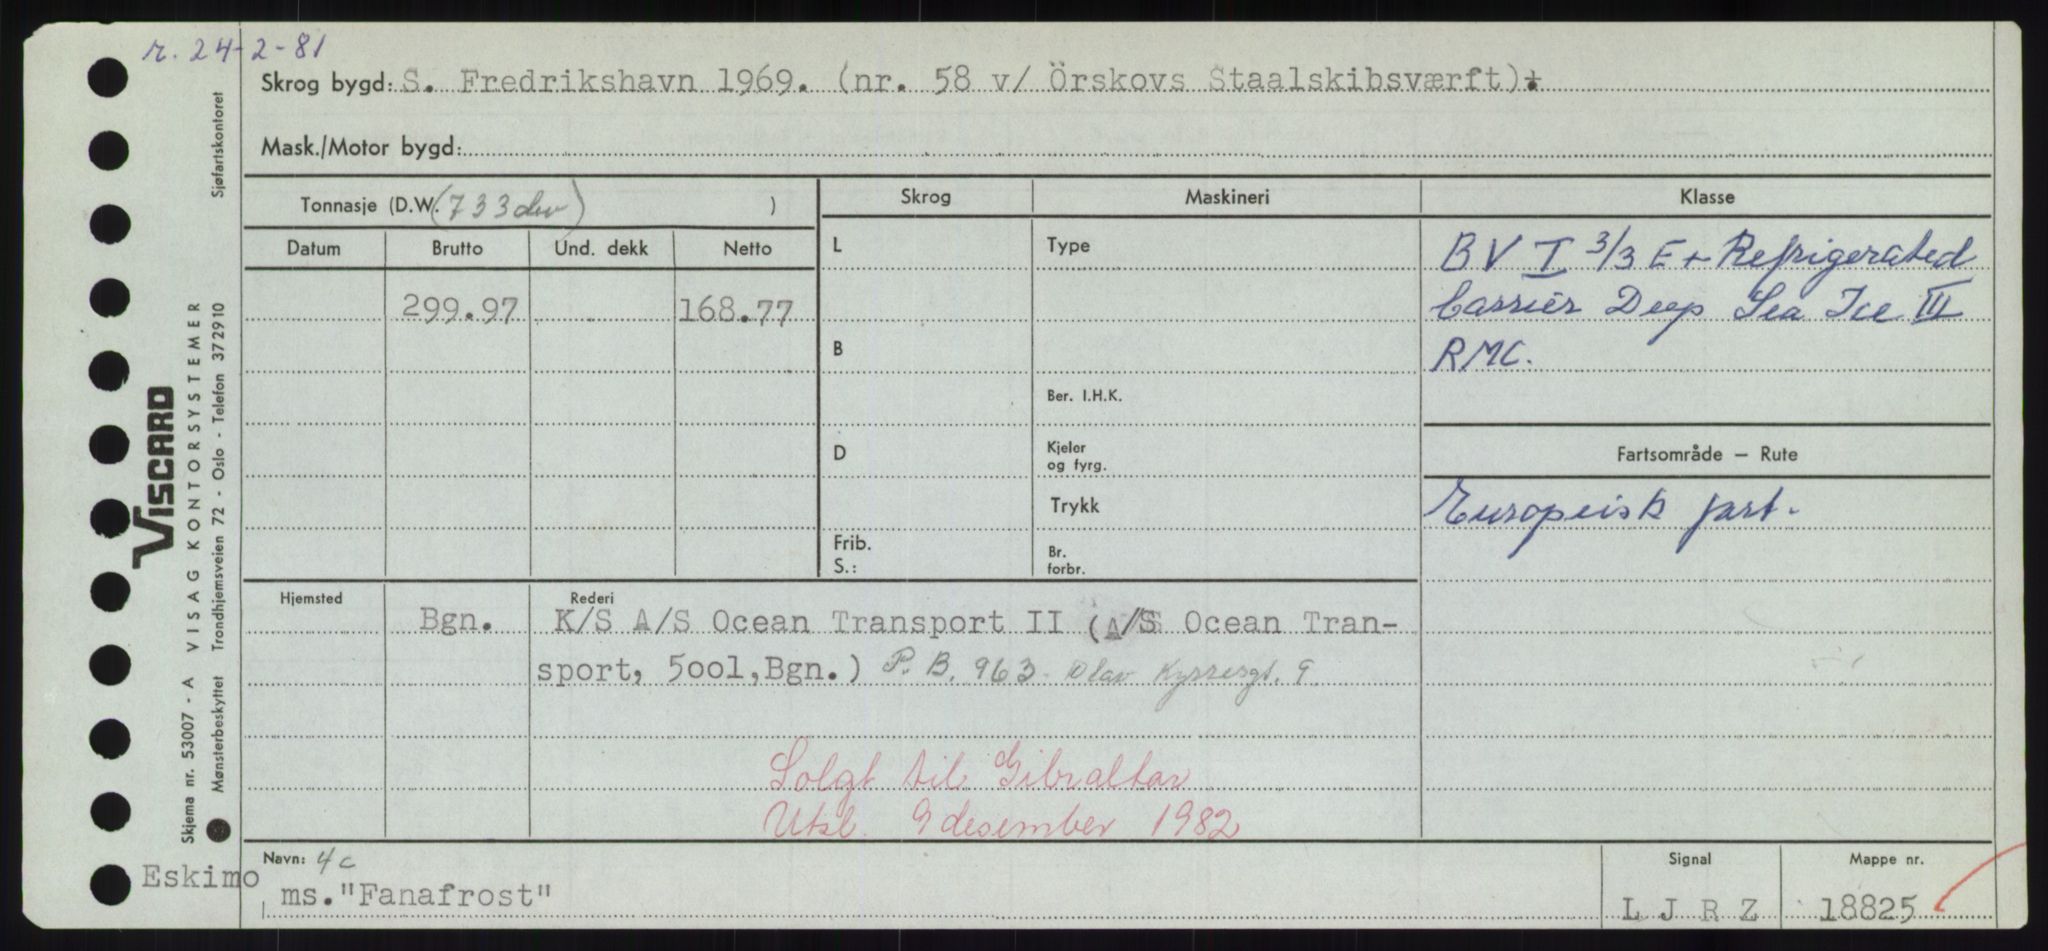 r. 24-2-81
Skrog bygd: S. Fredrikshavn 1969. (nr. 58 v/ Örskovs Staalskibsværft).
Mask./Motor bygd:
Tonnasje (D.W. (733 dw) )
Skrog Maskineri Klasse
Datum Brutto Und. dekk Netto
L Type
BV I 3/3 E + Refrigerated
299.97 168.77
Carrier Deep Sea Ice III
B
RMC.
Ber. I.H.K.
D Kjeler og fyrg.
Fartsområde - Rute
Trykk
Europeisk fart.
Frib. Br.
S.: forbr.
Hjemsted Rederi
Bgn. K/S A/S Ocean Transport II (A/S Ocean Tran-
sport, 5001,Bgn.) P.B. 963 Olav Kyrresgt. 9
Solgt til Gibraltar
Utsl. 9 desember 1982
Navn: 4c
Signal Mappe nr.
Eskimo
ms."Fanafrost"
L J R Z 18825
VISCARD
Skjema nr. 53007 - A VISAG KONTORSYSTEMER
Mønsterbeskyttet Trondhjemsveien 72 - Oslo - Telefon 372910 Sjøfartskontoret